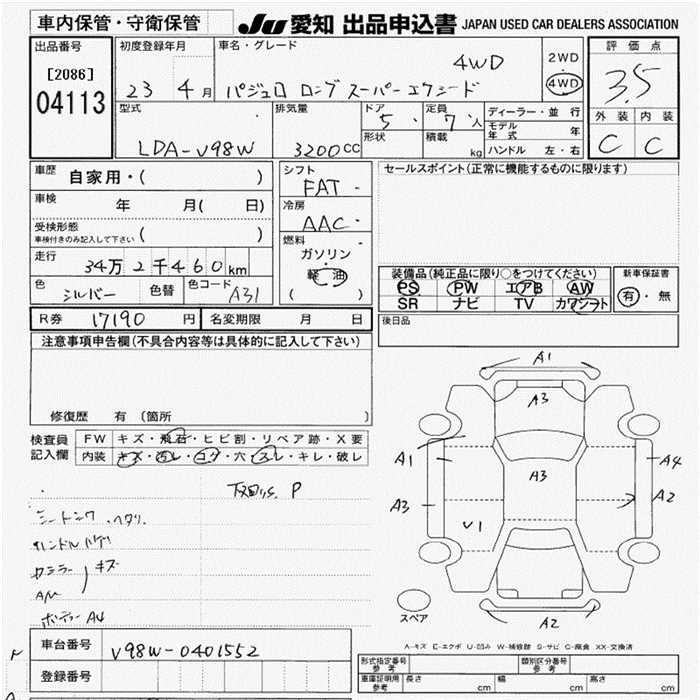 車内保管・守衛保管
JU 愛知 出品申込書 JAPAN USED CAR DEALERS ASSOCIATION
出品番号
[2086]
04113
初度登録年月
23 4 月
車名・グレード
4WD
パジェロ ロング スーパーエクシード
2WD
4WD
評価点
3.5
外装 内装
C C
型式
LDA-V98W
排気量
3200 CC
ドア
5
定員
7 人
形状
積載
kg
ディーラー・並行
モデル年式 年
ハンドル 左・右
車歴
自家用・( )
車検
年 月( 日)
受検形態
車検付きのみ記入して下さい ( )
走行
34万2千460 km
色
シルバー
色替
色コード
A31
シフト
FAT
冷房
AAC
燃料
ガソリン
軽油
( )
セールスポイント(正常に機能するものに限ります)
装備品(純正品に限り○をつけてください)
PS PW エアB AW
SR ナビ TV カワシート
新車保証書
有・無
R券 17190 円
名変期限 月 日
後日品
注意事項申告欄(不具合内容等は具体的に記入して下さい)
修復歴 有 (箇所 )
検査員記入欄
FW キズ・飛石・ヒビ割・リペア跡・X要
内装 キズ・汚レ・コゲ・穴・スレ・キレ・破レ
下回りS P
シートシワ・ヘタリ
ハンドルハゲ
キズ
AM
A4
A1
A3
A1
A3
A3
U1
A4
A2
A2
スペア
A-キズ E-エクボ U-凹み W-補修跡 S-サビ C-腐食 XX-交換済
車台番号
V98W-0401552
登録番号
形式指定番号
参考
類別区分番号
参考
車庫証明用
参考
長さ cm
幅 cm
高さ cm